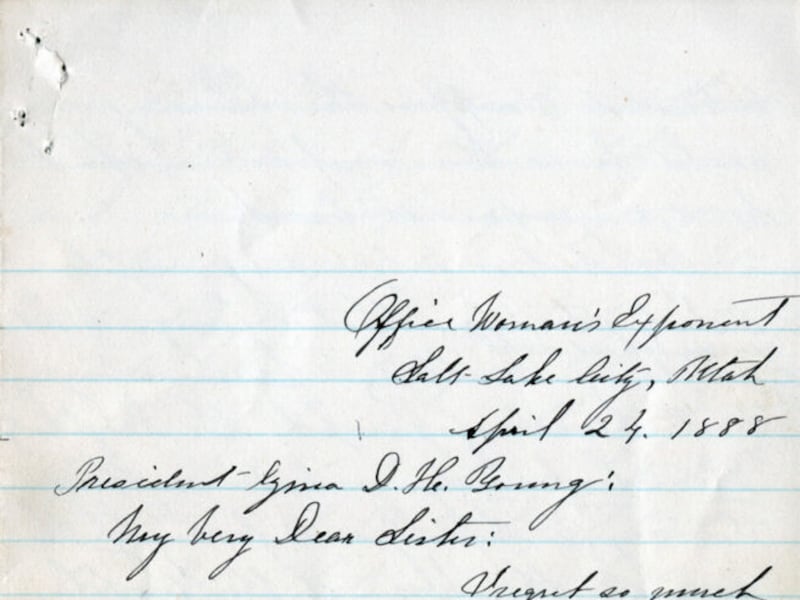 Office Woman's Exponent
Salt Lake City, Utah
April 24. 1888
President Zina D. H. Young:
My Very Dear Sister:
I regret so much